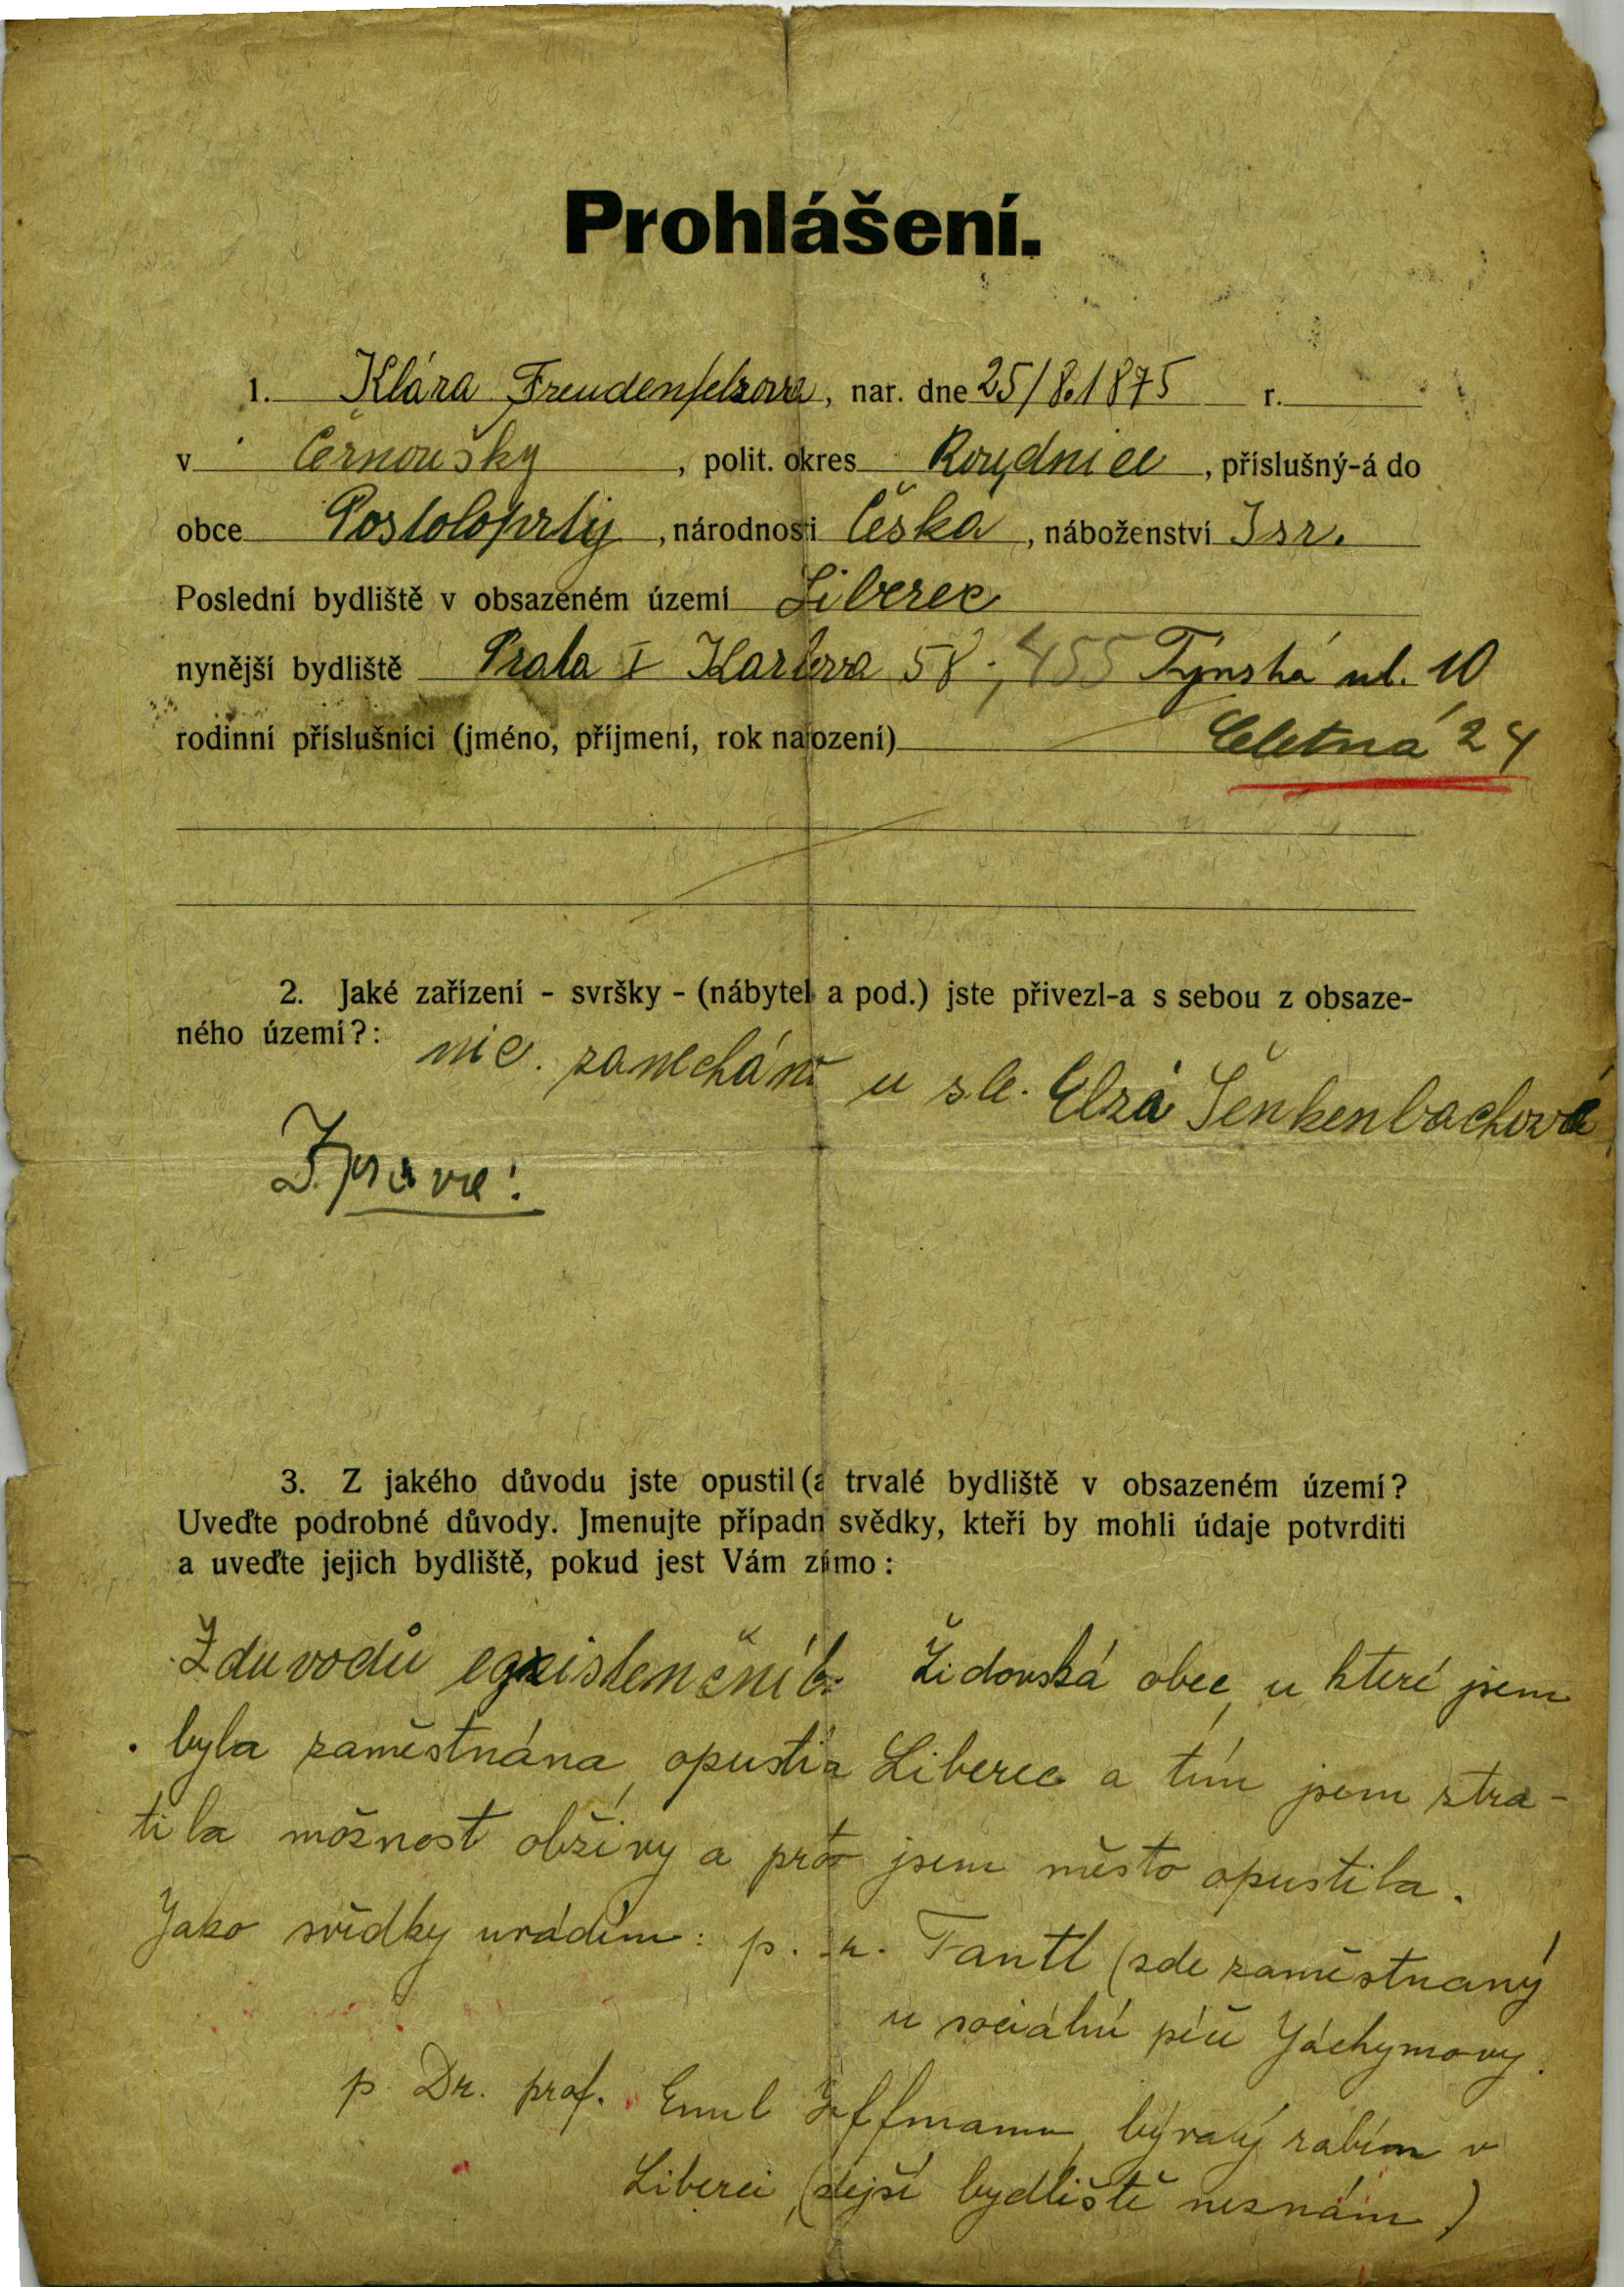 Prohlášení.
1. Klára Freudenfelsova, nar. dne 25/8.1875 r.
v Černoušky, polit. okres Roudnice, příslušný-á do
obce Postoloprty, národnosti Česká, náboženství Isr.
Poslední bydliště v obsazeném území Liberec
nynější bydliště Praha I Karlova 58; 455 Týnská ul. 10
rodinní příslušníci (jméno, příjmení, rok narození) Celetná 24
2. Jaké zařízení - svršky - (nábytek a pod.) jste přivezl-a s sebou z obsaze-
ného území?:
nic. zanechání u sle. Elza Šenkenbachová
3. Z jakého důvodu jste opustil(a trvalé bydliště v obsazeném území?
Uveďte podrobné důvody. Jmenujte případn svědky, kteří by mohli údaje potvrditi
a uveďte jejich bydliště, pokud jest Vám známo:
Z duvodů egxistenčních Židovská obec, u které jsem
byla zaměstnána, opustila Liberec a tím jsem ztra-
tila možnost obživy a proto jsem město opustila.
Jako svědky uvádím: p. Dr. Tantl (zde zaměstnaný
u sociální péči Jáchymovy.
p. Dr. prof. Emil Hoffmann, bývalý rabín v
Liberci, (zdejší bydliště neznám)